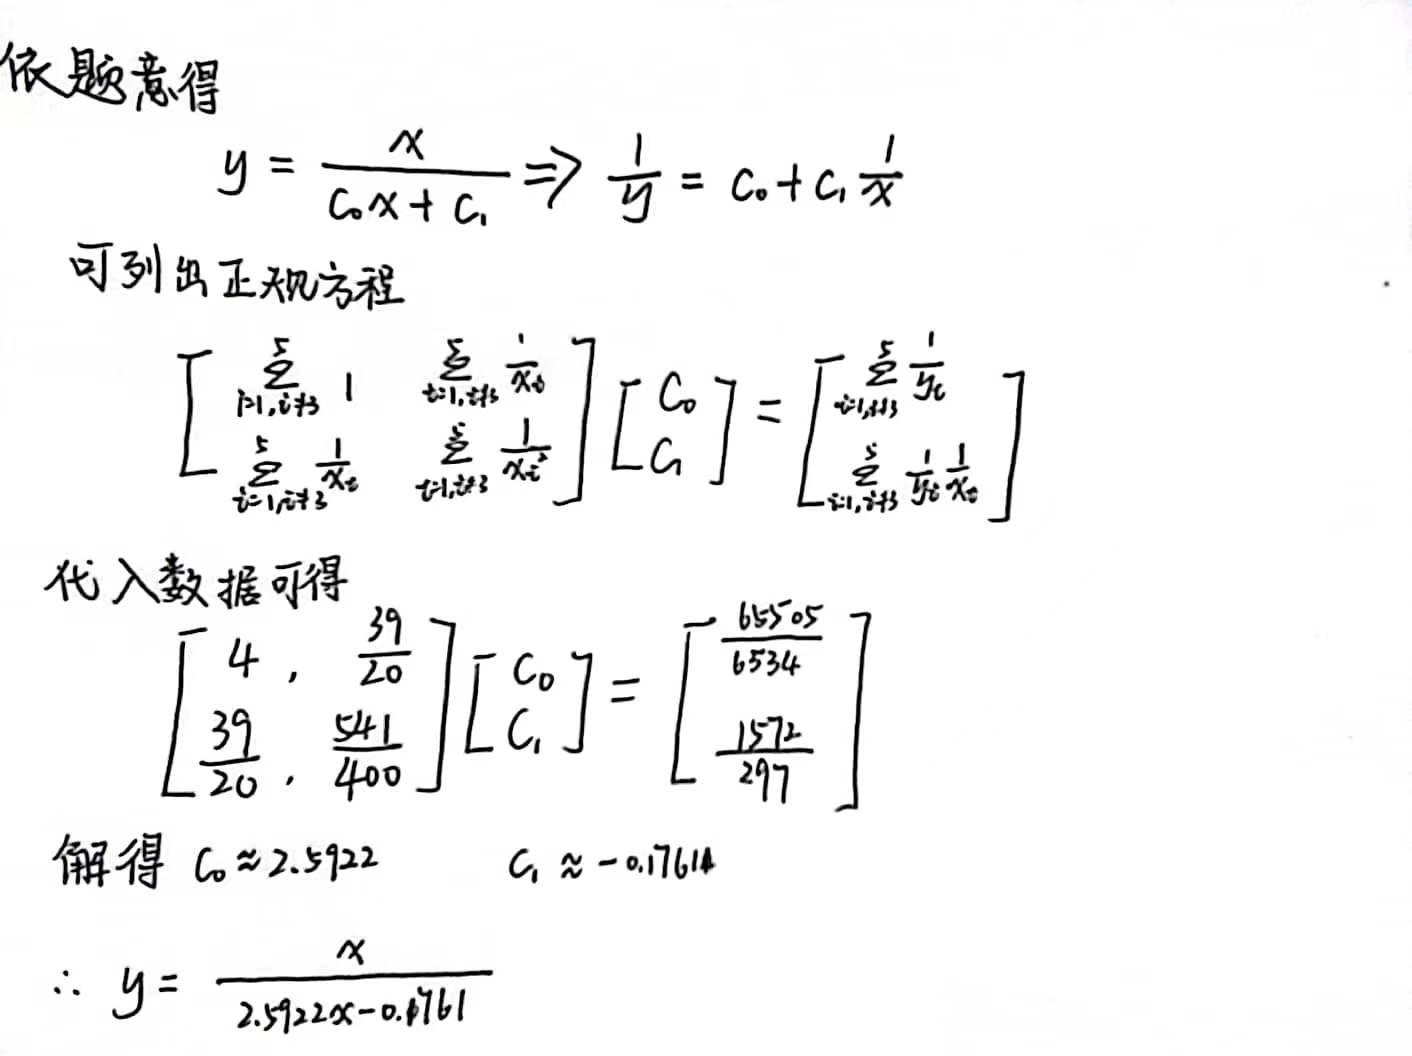 依题意得
y = x/(C₀x + C₁) ⇒ 1/y = C₀ + C₁ 1/x
可列出正规方程
[ ∑_{i=1,i≠3}^{5} 1   ∑_{i=1,i≠3}^{5} 1/xᵢ ; ∑_{i=1,i≠3}^{5} 1/xᵢ   ∑_{i=1,i≠3}^{5} 1/xᵢ² ] [ C₀ ; C₁ ] = [ ∑_{i=1,i≠3}^{5} 1/yᵢ ; ∑_{i=1,i≠3}^{5} 1/yᵢ 1/xᵢ ]
代入数据可得
[ 4 , 39/20 ; 39/20 , 541/400 ] [ C₀ ; C₁ ] = [ 65505/6534 ; 1572/297 ]
解得 C₀ ≈ 2.5922   C₁ ≈ -0.1761
∴ y = x/(2.5922x - 0.1761)